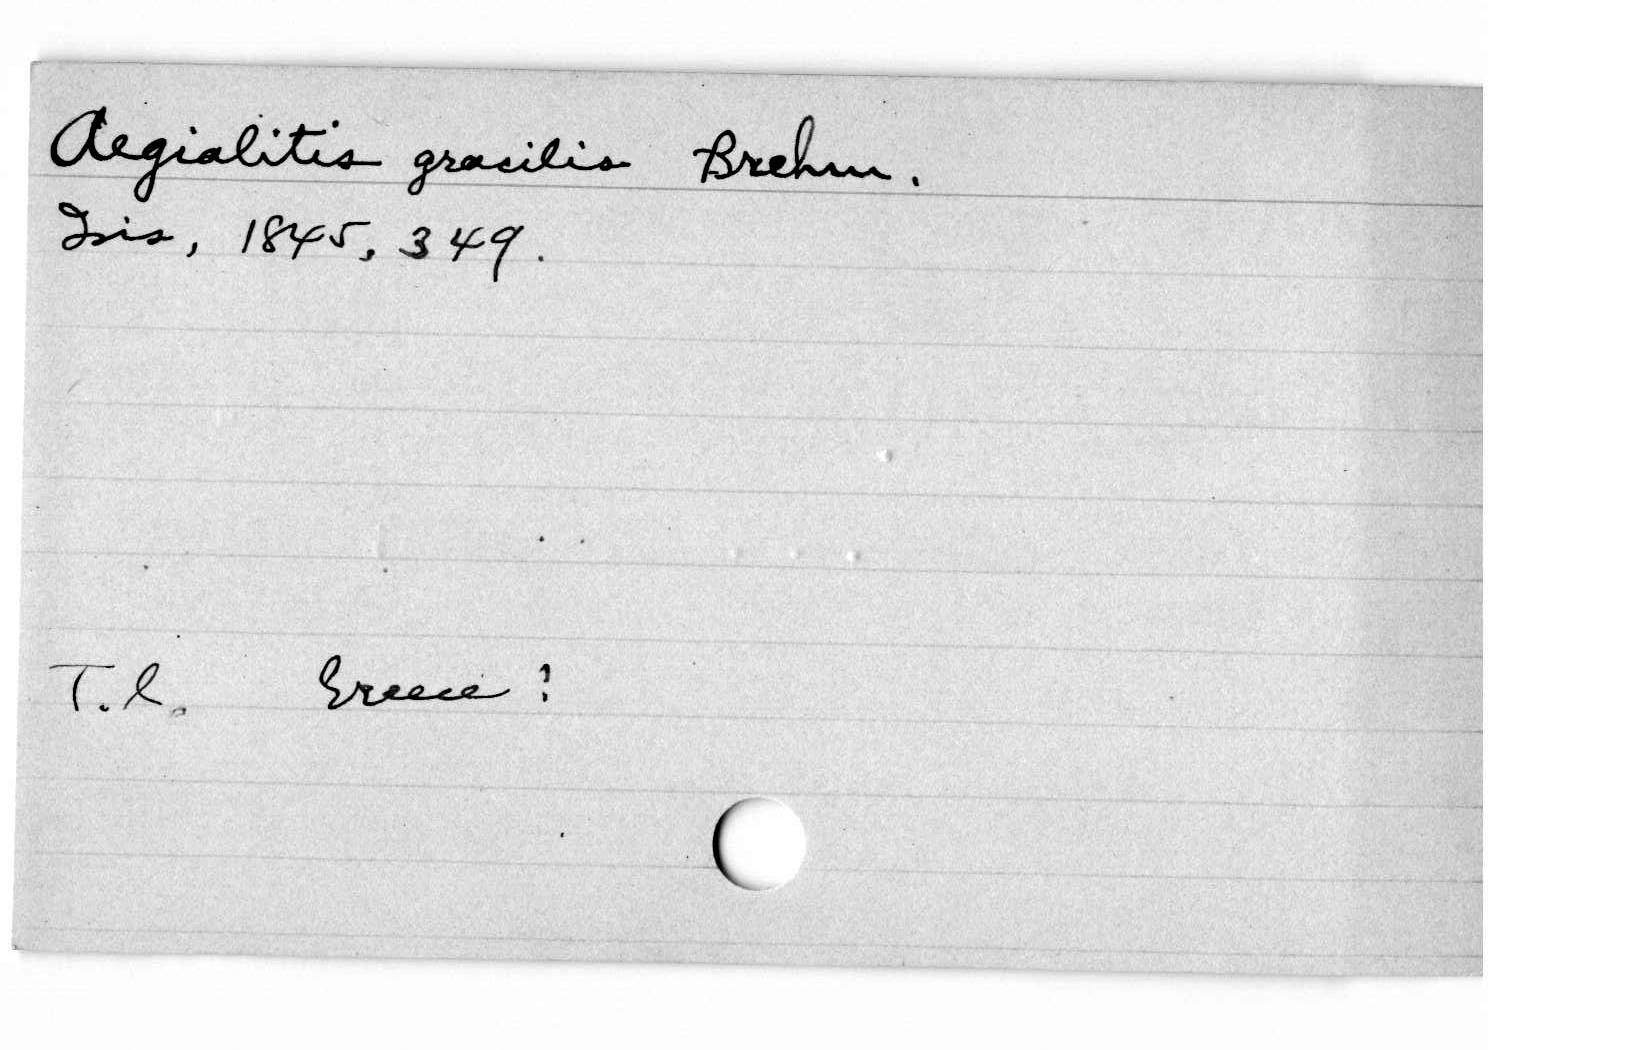 Aegialitis gracilis Brehm.
Isis, 1845, 349.
T.l. Greece ?